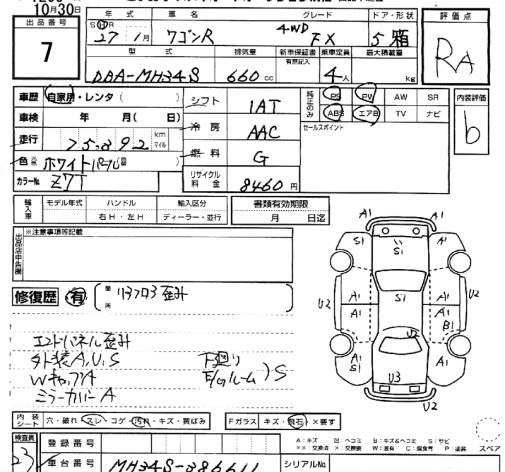 10月30日
出品番号
7
年 式 車 名 グレード ドア・形状
S H R 27年 1月 ワゴンR 4WD FX 5 箱
型 式 排気量 新車保証書 有無記入 乗車定員 最大積載量
DBA-MH34S 660 cc 4人 kg
評価点
RA
車歴 自家用・レンタ ( )
車検 年 月( 日)
走行 75,892 km マイル
色 ホワイトパール
カラーNo Z7T
シフト 1AT
冷房 AAC
燃料 G
リサイクル料金 8460円
純正のみ PS PW AW SR
ABS エアB TV ナビ
セールスポイント
内装評価
b
輸入車 モデル年式 ハンドル 輸入区分 書類有効期限
右H・左H ディーラー・並行 月 日迄
出品店申告欄 ※注意事項等記載
修復歴 有 箇所 リヤフロア歪み
エンドパネル歪み
外装A,U,S 下廻り
WキャップA E/Gルーム )S
ミラーカバーA
A1 A1
S1 S1 A1
U2 A1 S1 A1 U2
A1 A1 B1
U2
U3
A1 A1
U2
内装シート 穴・破れ・スレ・コゲ・汚れ・キズ・黄ばみ Fガラス キズ・飛石・×要す
検査員
登録番号
車台番号 MH34S-386611
シリアルNo
A:キズ 凹:ヘコミ B:キズ&ヘコミ S:サビ
××:交換済 ×:交換要 W:波有 C:腐食有 P:塗装 スペア